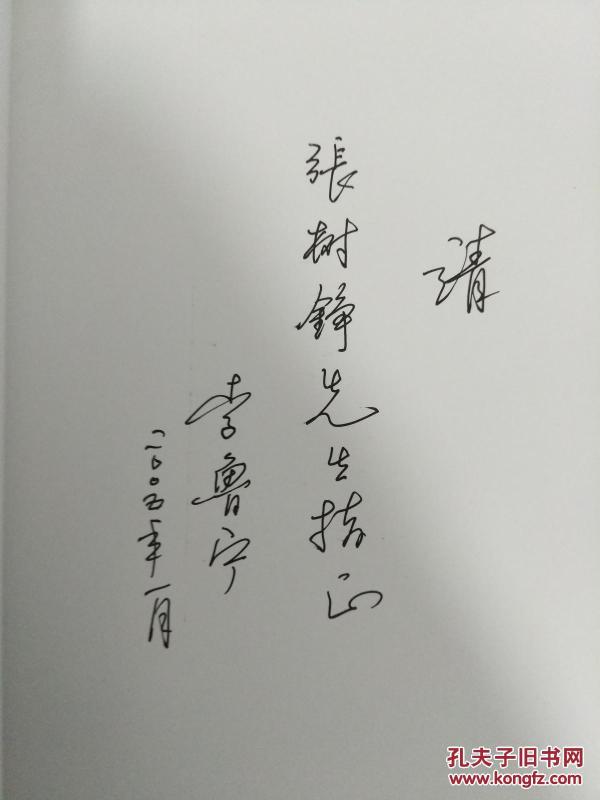 请
張树錚先生指正
李鲁宁
二〇〇五年一月
孔夫子旧书网
www.kongfz.com